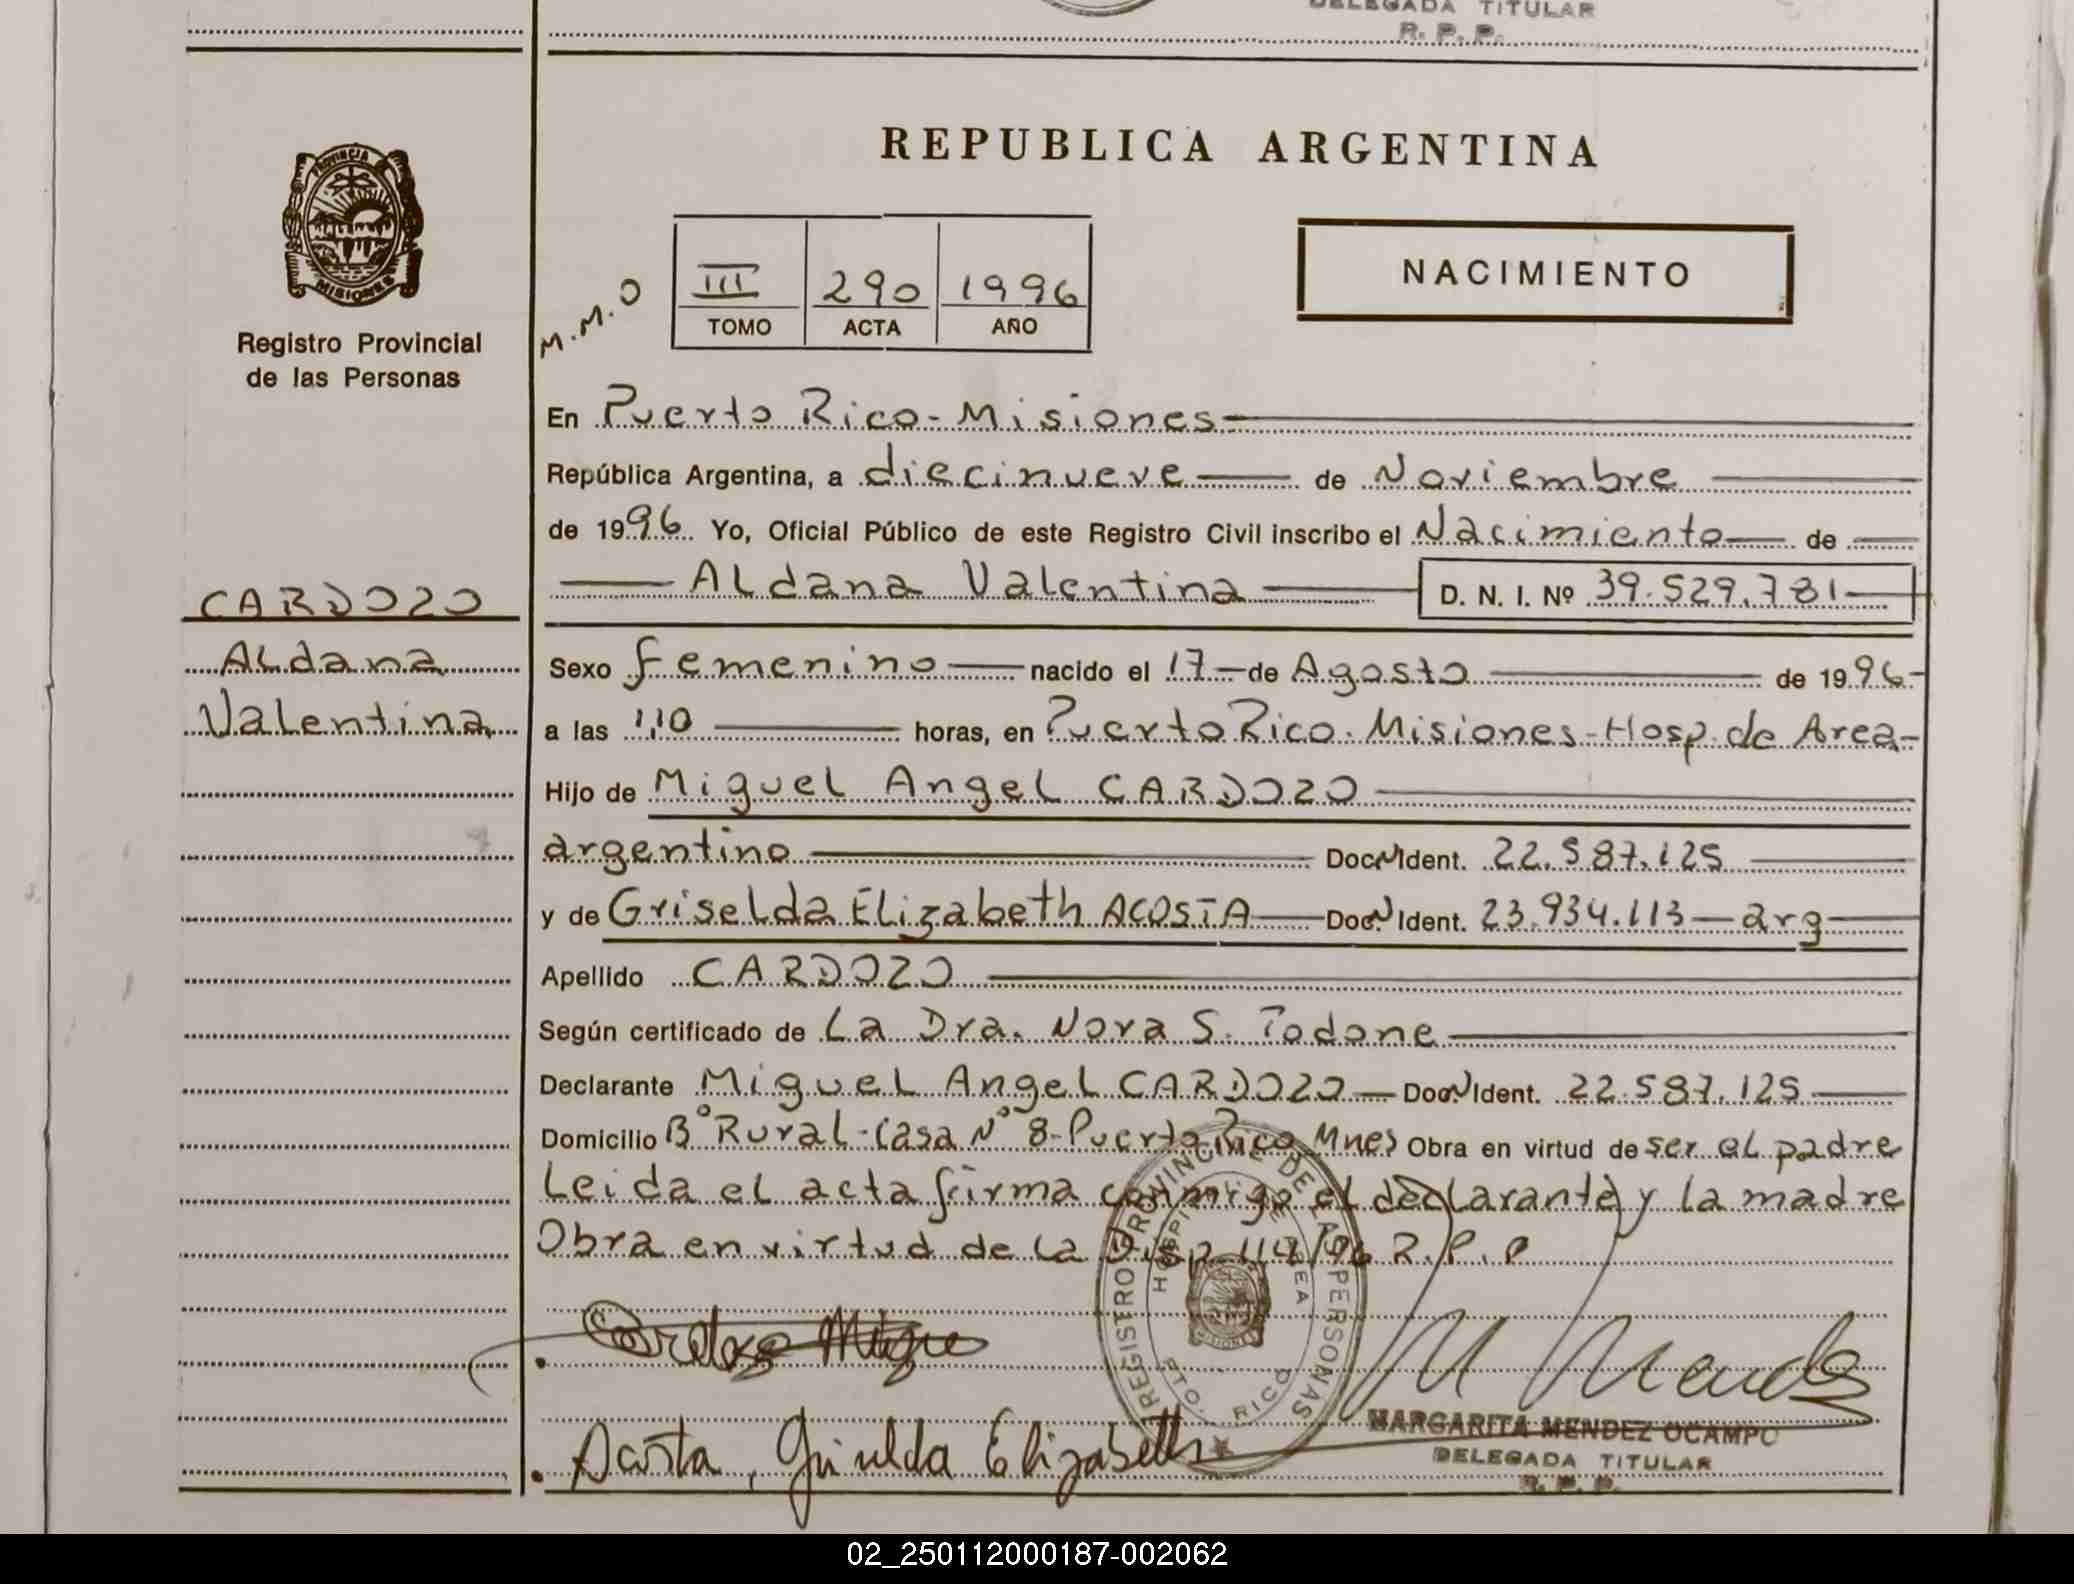 DELEGADA TITULAR
R. P. P.
PROVINCIA
MISIONES
Registro Provincial
de las Personas
CARDOZO
Aldana
Valentina
REPUBLICA ARGENTINA
M.M.O
III 290 1996
TOMO ACTA AÑO
NACIMIENTO
En Puerto Rico - Misiones
República Argentina, a diecinueve de Noviembre
de 1996. Yo, Oficial Público de este Registro Civil inscribo el Nacimiento de
Aldana Valentina D. N. I. Nº 39.529.781
Sexo femenino nacido el 17 de Agosto de 1996
a las 1,10 horas, en Puerto Rico. Misiones - Hosp. de Area
Hijo de Miguel Angel CARDOZO
argentino Doc. N Ident. 22.587.125
y de Griselda Elizabeth ACOSTA Doc. N Ident. 23.934.113 arg
Apellido CARDOZO
Según certificado de La Dra. Nora S. Todone
Declarante Miguel Angel CARDOZO Doc. N Ident. 22.587.125
Domicilio Bº Rural - Casa Nº 8 - Puerto Rico Mnes Obra en virtud de ser el padre
Leida el acta firma conmigo el declarante y la madre
Obra en virtud de la Disp 114/96 R.P.P
REGISTRO PROVINCIAL DE LAS PERSONAS
HOSPITAL DE AREA
PTO. RICO
MISIONES
Cardozo Migue
M Mendez
MARGARITA MENDEZ OCAMPO
DELEGADA TITULAR
R. P. P.
Acosta, Griselda Elizabeth
02_250112000187-002062